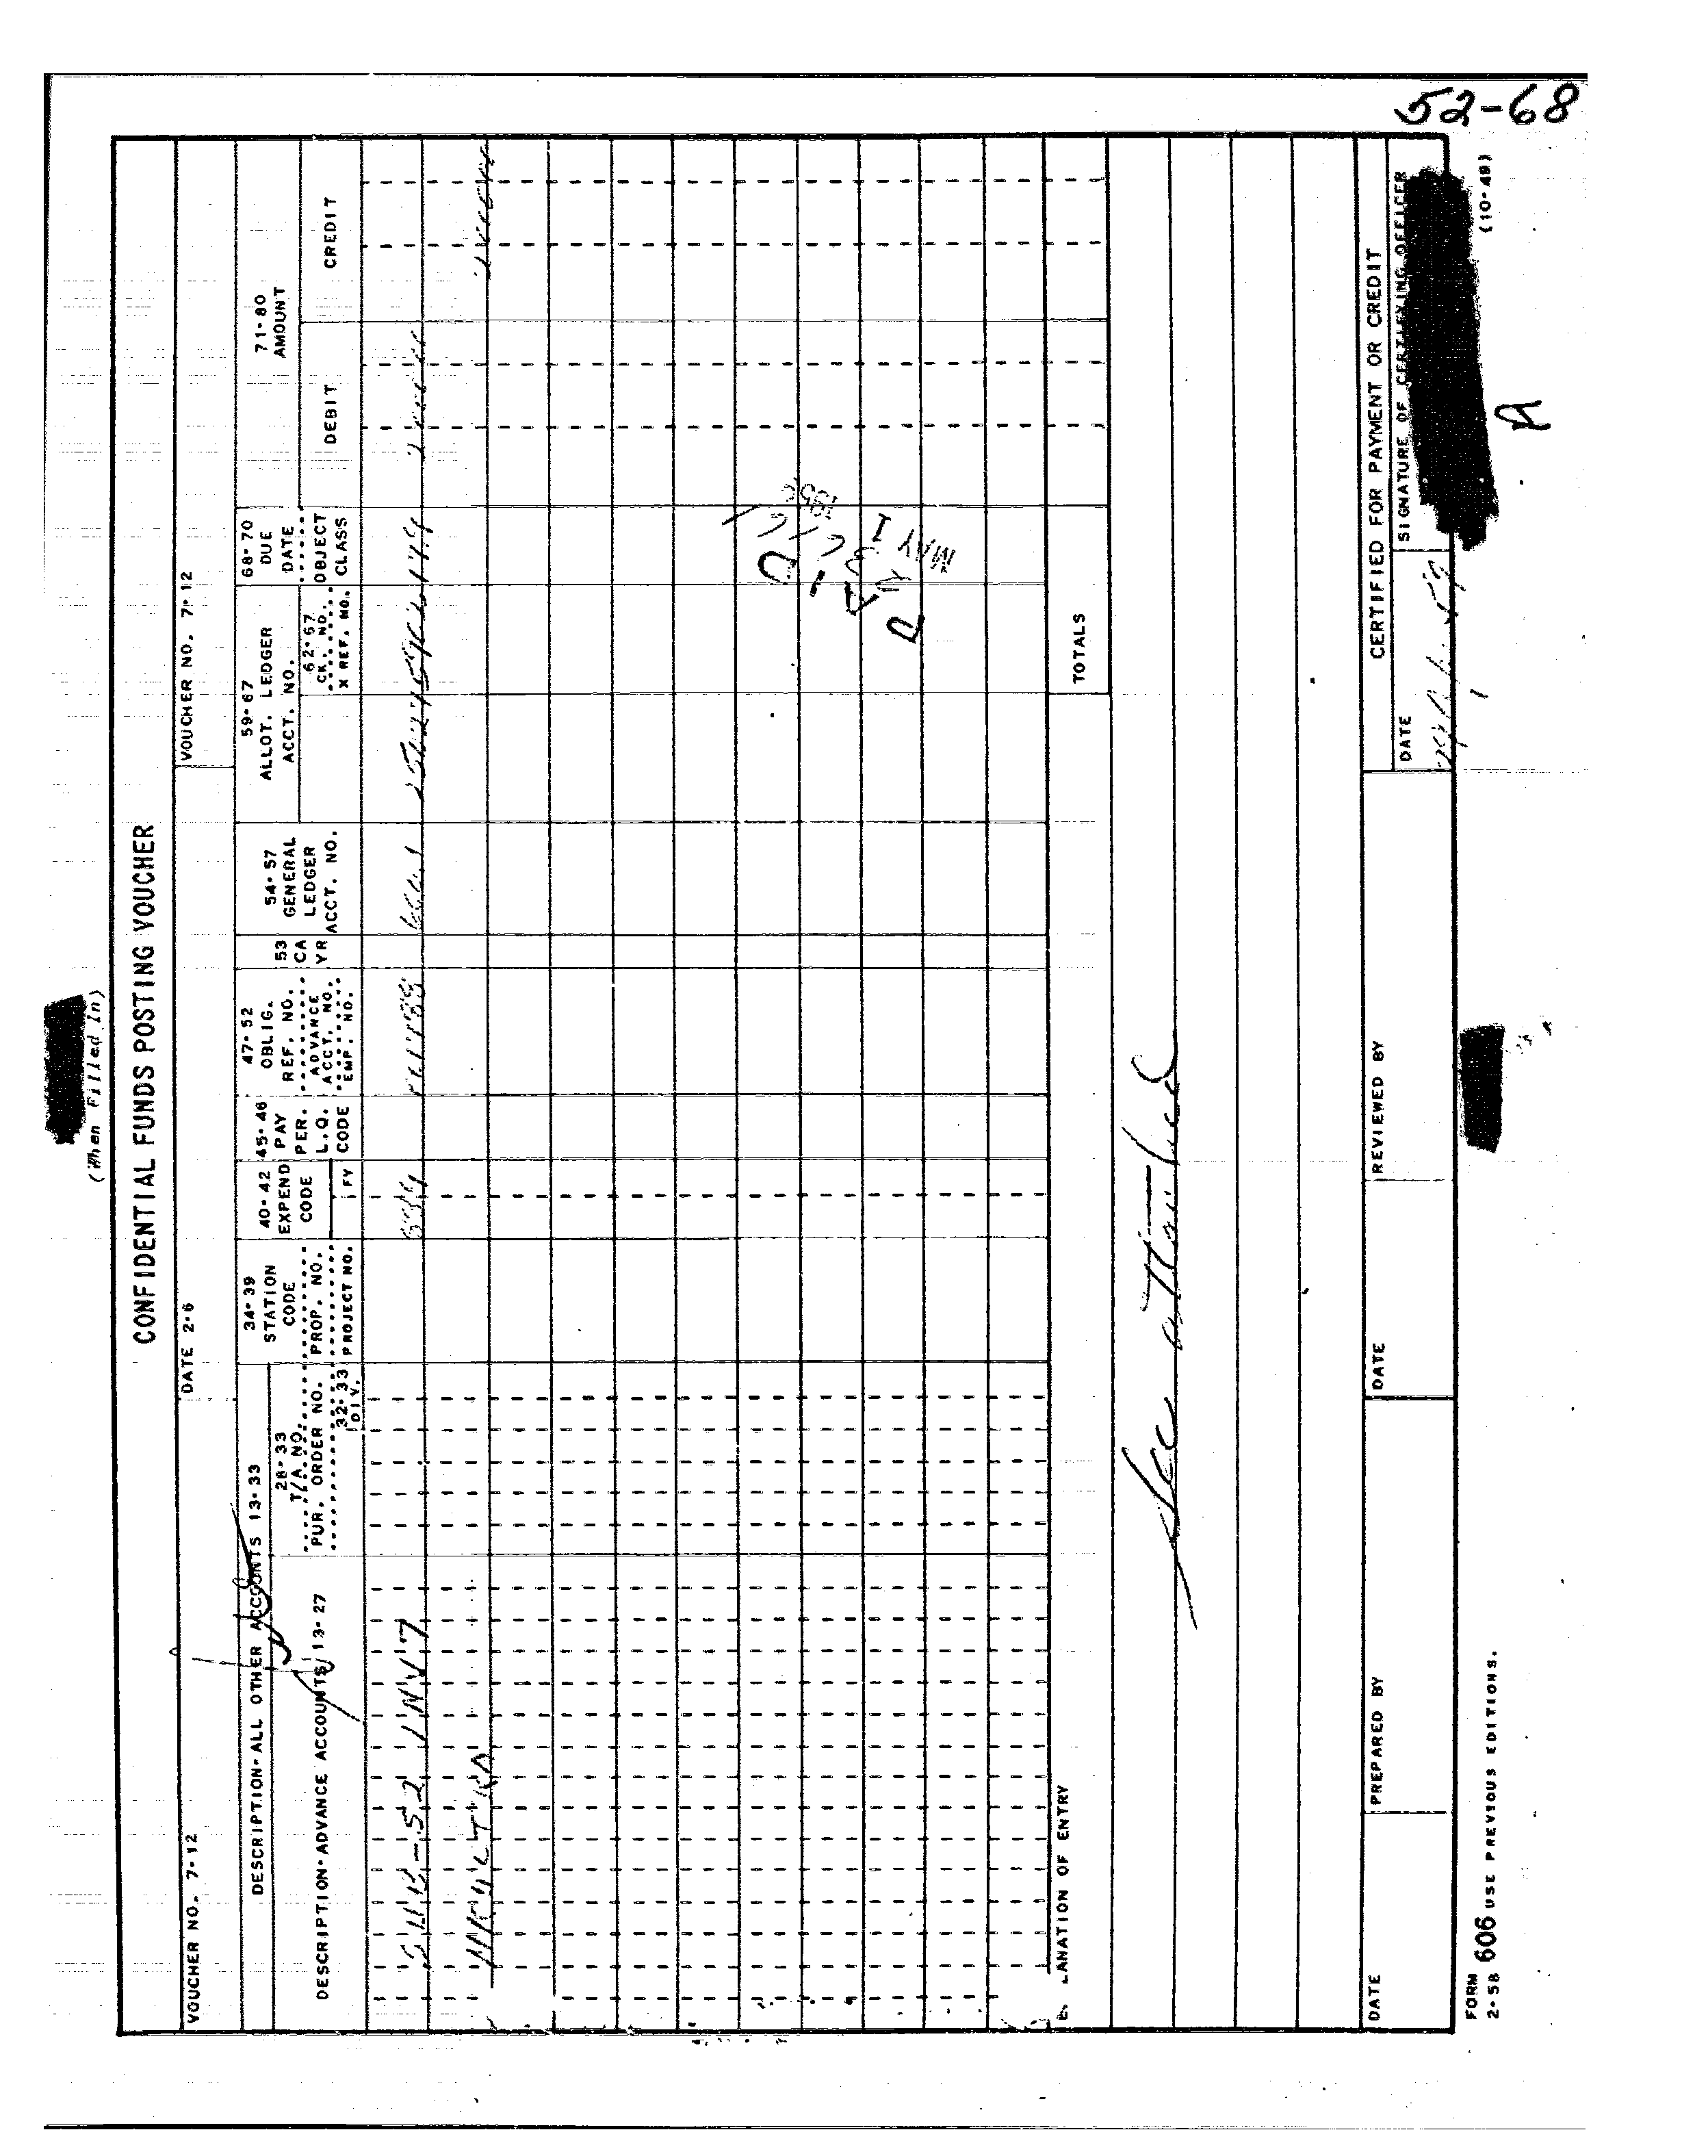 52-68
(When Filled In)
CONFIDENTIAL FUNDS POSTING VOUCHER
VOUCHER NO. 7-12
DATE 2-6
VOUCHER NO. 7-12
DESCRIPTION-ALL OTHER ACCOUNTS 13-33
DESCRIPTION-ADVANCE ACCOUNTS 13-27
28-33
T/A NO.
PUR. ORDER NO.
32-33
DIV.
34-39
STATION
CODE
PROP. NO.
PROJECT NO.
40-42
EXPEND
CODE
FY
45-46
PAY
PER.
L.Q.
CODE
47-52
OBLIG.
REF. NO.
ADVANCE
ACCT. NO.
EMP. NO.
53
CA
YR
54-57
GENERAL
LEDGER
ACCT. NO.
59-67
ALLOT. LEDGER
ACCT. NO.
62-67
CK. NO.
X REF. NO.
68-70
DUE
DATE
OBJECT
CLASS
71-80
AMOUNT
DEBIT
CREDIT
SUB-52 INV7
PAID
MAY 1
TOTALS
LANATION OF ENTRY
See attached
DATE
PREPARED BY
DATE
REVIEWED BY
CERTIFIED FOR PAYMENT OR CREDIT
DATE
SIGNATURE OF CERTIFYING OFFICER
FORM
2-58 606 USE PREVIOUS EDITIONS.
(10-49)